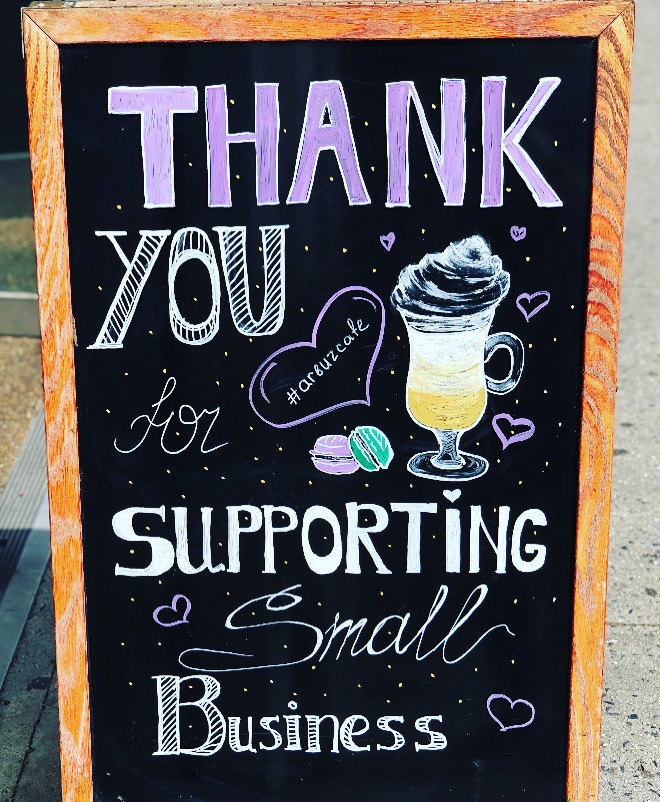 THANK
YOU
#arbuzcafe
for
SUPPORTiNG
Small
Business